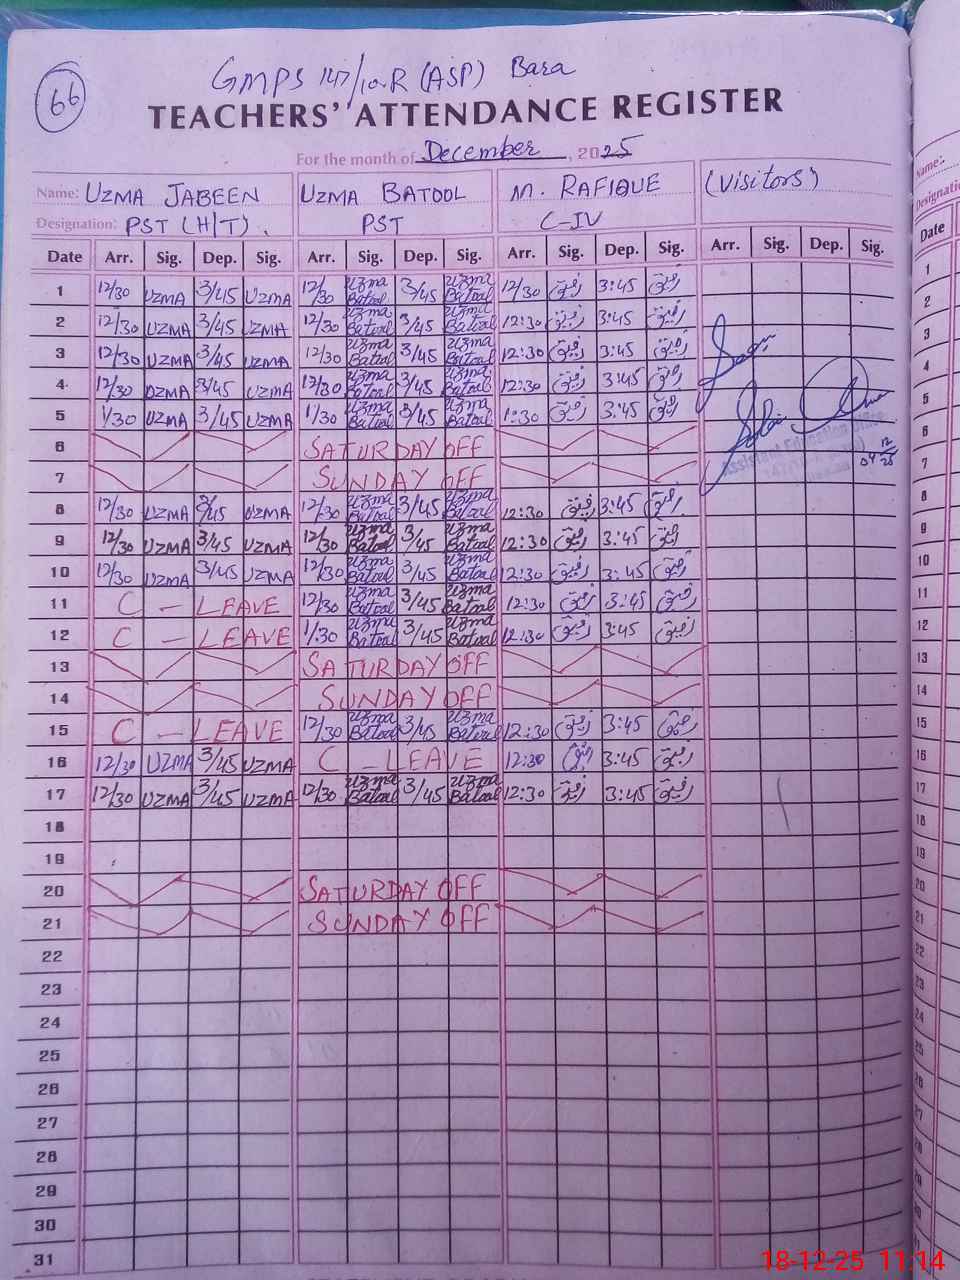 66
GMPS 147/10-R (ASP) Bara
TEACHERS' ATTENDANCE REGISTER
For the month of December, 2025
Name: UZMA JABEEN UZMA BATOOL M. RAFIQUE (Visitors)
Designation: PST (H/T). PST C-IV
Date Arr. Sig. Dep. Sig. Arr. Sig. Dep. Sig. Arr. Sig. Dep. Sig. Arr. Sig. Dep. Sig.
1 12/30 UZMA 3/45 UZMA 12/30 Uzma Batool 3/45 Uzma Batool 12/30 رفیق 3:45 رفیق
2 12/30 UZMA 3/45 UZMA 12/30 Uzma Batool 3/45 Uzma Batool 12:30 رفیق 3:45 رفیق
3 12/30 UZMA 3/45 UZMA 12/30 Uzma Batool 3/45 Uzma Batool 12:30 رفیق 3:45 رفیق
4 12/30 UZMA 3/45 UZMA 12/30 Uzma Batool 3/45 Uzma Batool 12:30 رفیق 3:45 رفیق
5 1/30 UZMA 3/45 UZMA 1/30 Uzma Batool 3/45 Uzma Batool 1:30 رفیق 3:45 رفیق
6 SATURDAY OFF
7 SUNDAY OFF 04 12 25
8 12/30 UZMA 3/45 UZMA 12/30 Uzma Batool 3/45 Uzma Batool 12:30 رفیق 3:45 رفیق
9 12/30 UZMA 3/45 UZMA 12/30 Uzma Batool 3/45 Uzma Batool 12:30 رفیق 3:45 رفیق
10 12/30 UZMA 3/45 UZMA 12/30 Uzma Batool 3/45 Uzma Batool 12:30 رفیق 3:45 رفیق
11 C - LEAVE 12/30 Uzma Batool 3/45 Uzma Batool 12:30 رفیق 3:45 رفیق
12 C - LEAVE 1/30 Uzma Batool 3/45 Uzma Batool 12:30 رفیق 3:45 رفیق
13 SATURDAY OFF
14 SUNDAY OFF
15 C - LEAVE 12/30 Uzma Batool 3/45 Uzma Batool 12:30 رفیق 3:45 رفیق
16 12/30 UZMA 3/45 UZMA C - LEAVE 12:30 رفیق 3:45 رفیق
17 12/30 UZMA 3/45 UZMA 12/30 Uzma Batool 3/45 Uzma Batool 12:30 رفیق 3:45 رفیق
18
19
20 SATURDAY OFF
21 SUNDAY OFF
22
23
24
25
26
27
28
29
30
31
Name:
Date
1
2
3
4
5
6
7
8
9
10
11
12
13
14
15
16
17
18
19
20
21
22
23
24
25
26
27
28
29
31
18-12-25 11:14